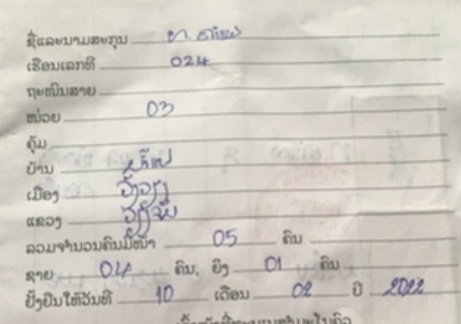 ຊື່ແລະນາມສະກຸນ ທ.
ເຮືອນເລກທີ 024
ຖະໜົນສາຍ
ໜ່ວຍ 03
ຄຸ້ມ
ບ້ານ
ເມືອງ ວັງວຽງ
ແຂວງ ວຽງຈັນ
ລວມຈຳນວນຄົນມີໜ້າ 05 ຄົນ
ຊາຍ 04 ຄົນ, ຍິງ 01 ຄົນ
ຢັ້ງຢືນໃຫ້ວັນທີ 10 ເດືອນ 02 ປີ 2022